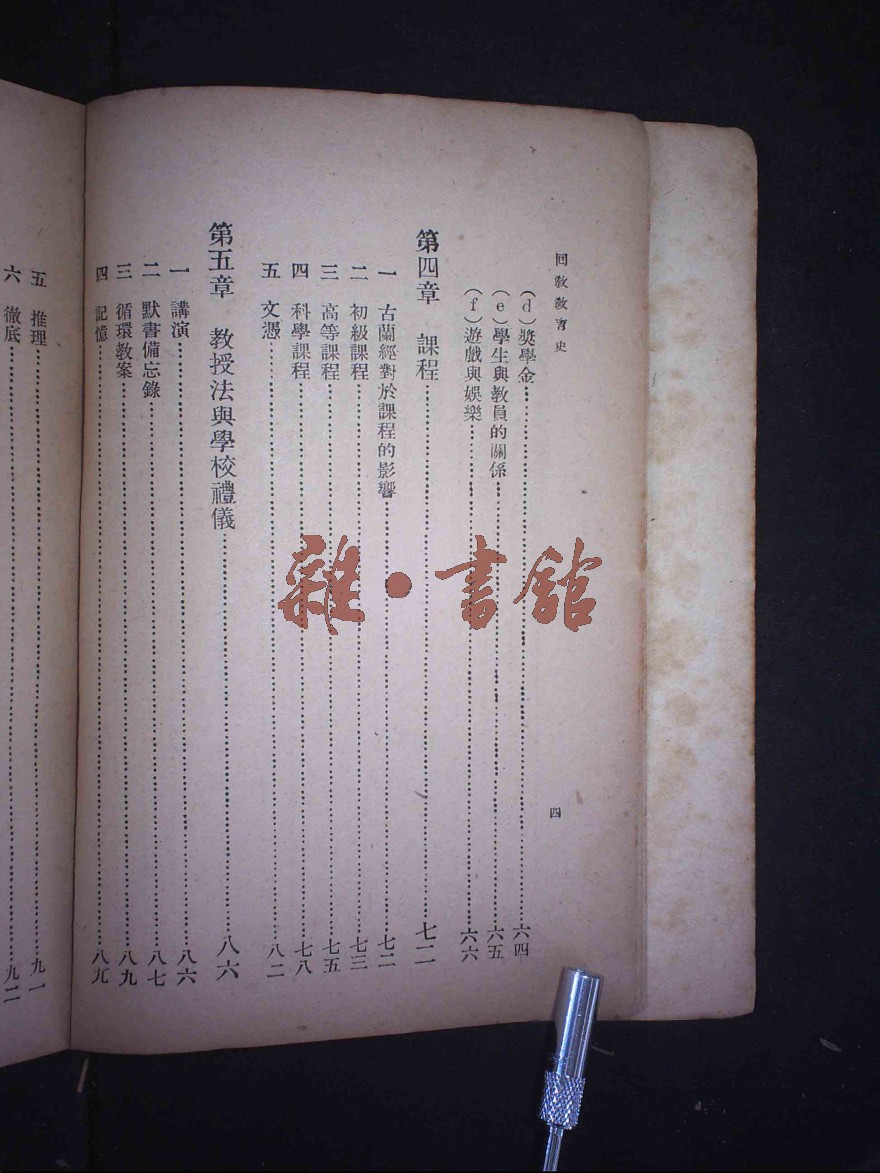 回教教育史
四
(d)獎學金……六四
(e)學生與教員的關係……六五
(f)遊戲與娛樂……六六
第四章 課程……七二
一 古蘭經對於課程的影響……七二
二 初級課程……七三
三 高等課程……七五
四 科學課程……七八
五 文憑……八二
第五章 教授法與學校禮儀……八六
一 講演……八六
二 默書備忘錄……八七
三 循環教案……八九
四 記憶……八九
五 推理……九一
六 徹底……九二
雜·書館